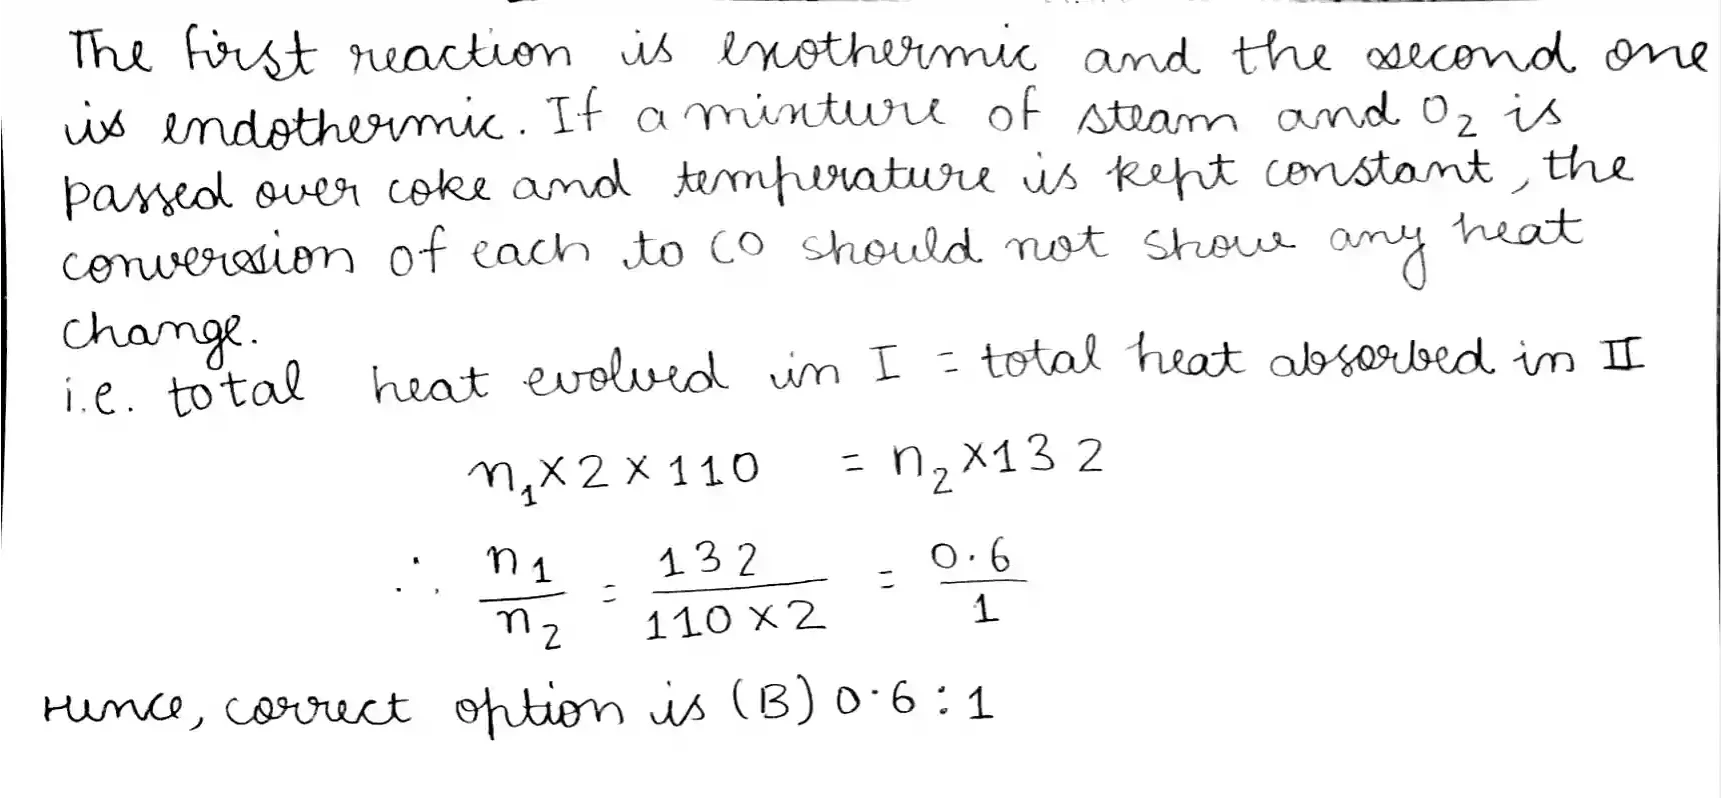 The first reaction is exothermic and the second one
is endothermic. If a mixture of steam and O₂ is
passed over coke and temperature is kept constant, the
conversion of each to CO should not show any heat
change.
i.e. total heat evolved in I = total heat absorbed in II
n₁ × 2 × 110 = n₂ × 132
∴ n₁/n₂ = 132/(110 × 2) = 0.6/1
Hence, correct option is (B) 0.6 : 1